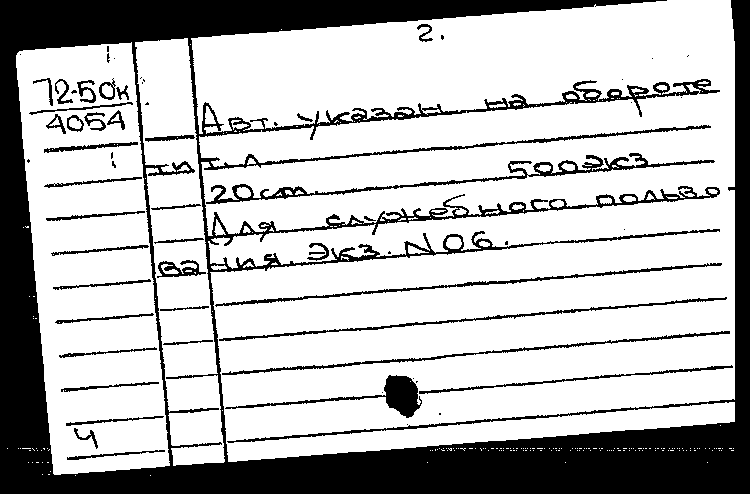 2.
72-50к
4054
Авт. указан на обороте
т. л.
20 cm. 500экз
Для служебного пользо-
вания. Экз. №06.
Ч